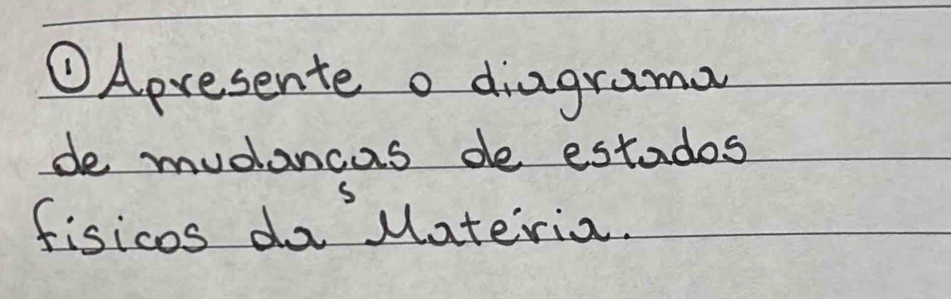 ① Apresente o diagrama
de mudanças de estados
físicos da Matéria.